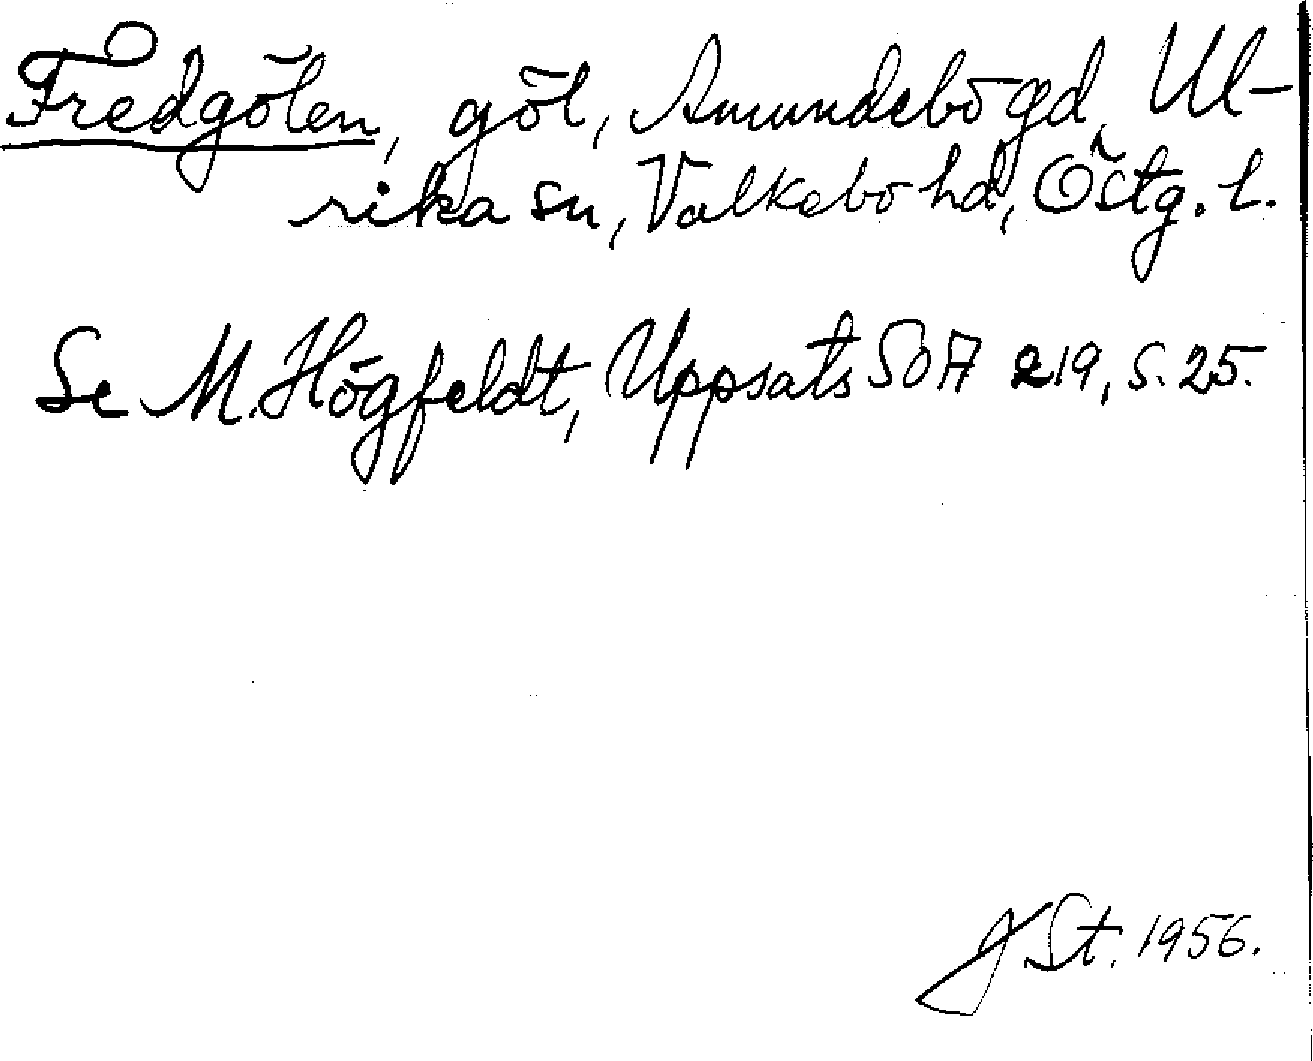 Fredgölen, göl, Amundebögd, Ul-
rika sn, Valkebo hd, Östg. l.
Se M. Högfeldt, Uppsats SOA 219, s. 25.
J St. 1956.